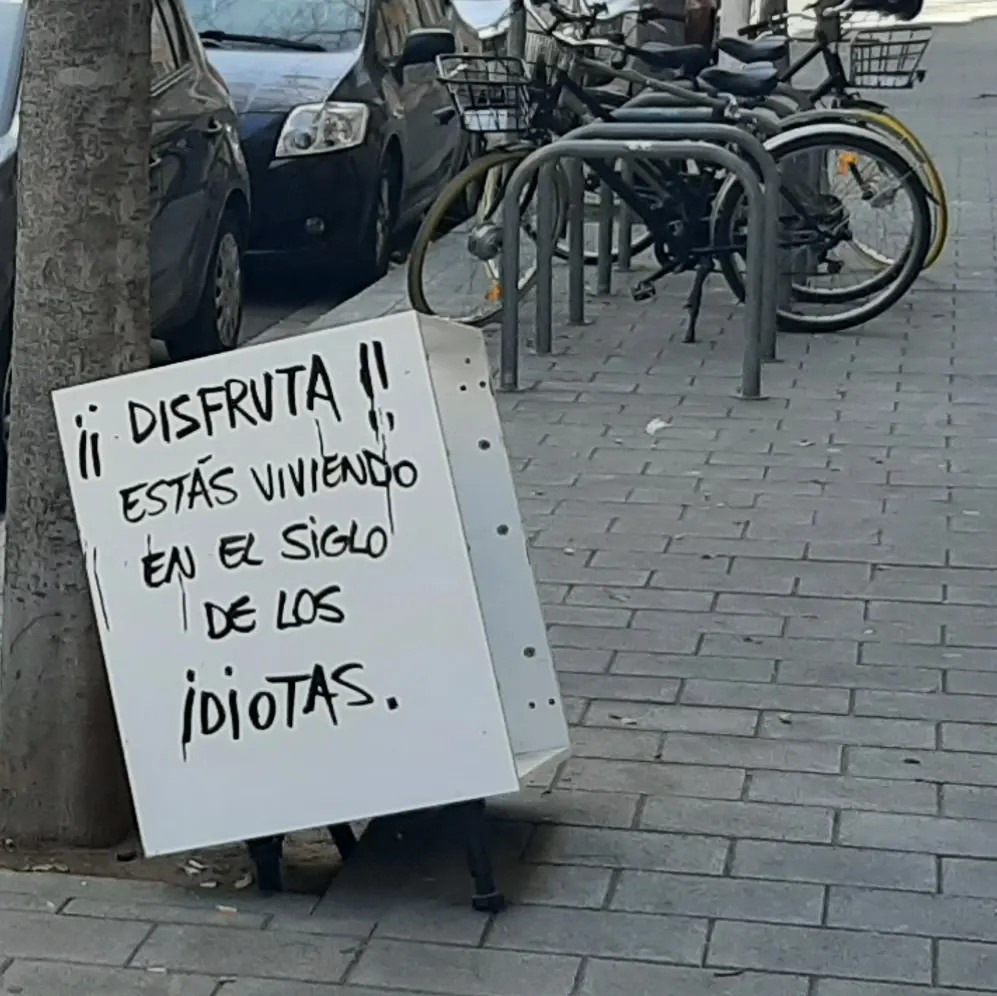 ¡¡ DISFRUTA !!
ESTÁS VIVIENDO
EN EL SIGLO
DE LOS
IDIOTAS.